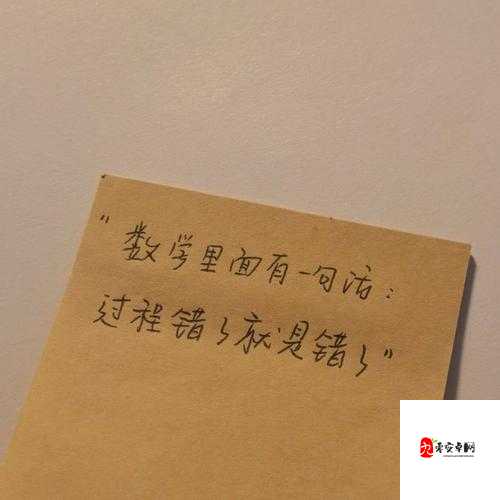 “数学里面有一句话：
过程错了就是错了”
安卓网